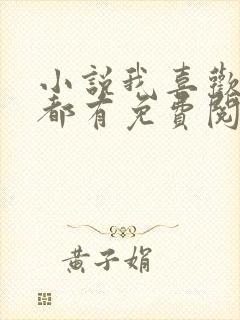 小說我喜歡
都有免費閱
黃子娟